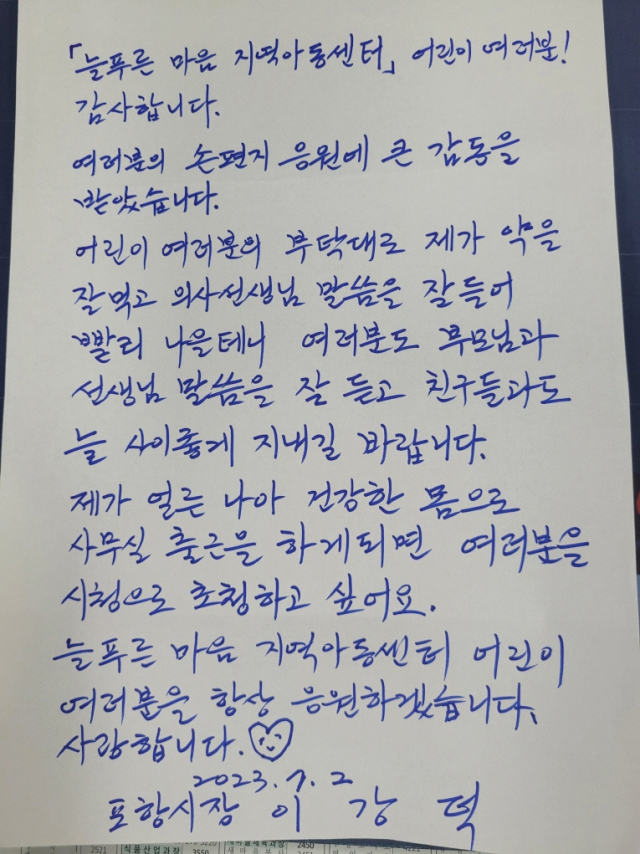 「늘푸른 마음 지역아동센터」 어린이 여러분!
감사합니다.
여러분의 손편지 응원에 큰 감동을
받았습니다.
어린이 여러분의 부탁대로 제가 약을
잘먹고 의사선생님 말씀을 잘들어
빨리 나을테니 여러분도 부모님과
선생님 말씀을 잘 듣고 친구들과도
늘 사이좋게 지내길 바랍니다.
제가 얼른 나아 건강한 몸으로
사무실 출근을 하게되면 여러분을
시청으로 초청하고 싶어요.
늘푸른 마음 지역아동센터 어린이
여러분을 항상 응원하겠습니다.
사랑합니다.
2023. 7. 2
포항시장 이 강 덕
2521 식품산업과장 3550 2450